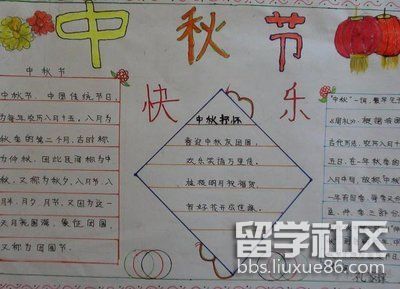 中秋节
快乐
中秋节
中秋节,中国传统节日,
为每年农历八月十五,八月为
秋季的第二个月,古时称
为仲秋,因此民间称为中
秋,又称为秋夕,八月节,八
月半,月夕,月节,又因为这一
天月亮圆满,象征团圆,
又称为团圆节。
中秋抒怀
喜迎中秋友团圆,
欢乐笑语万里传。
桂枝明月我遥赏,
有好花开在佳缘。
"中秋"一词,最早见于
《周礼》,根据我国
古代历法,农历八月十
五日,在一年秋季的
八月中旬,故称"中秋"
一年有四季,每季又分
孟、仲、季三部分
留学社区
bbs.liuxue86.com